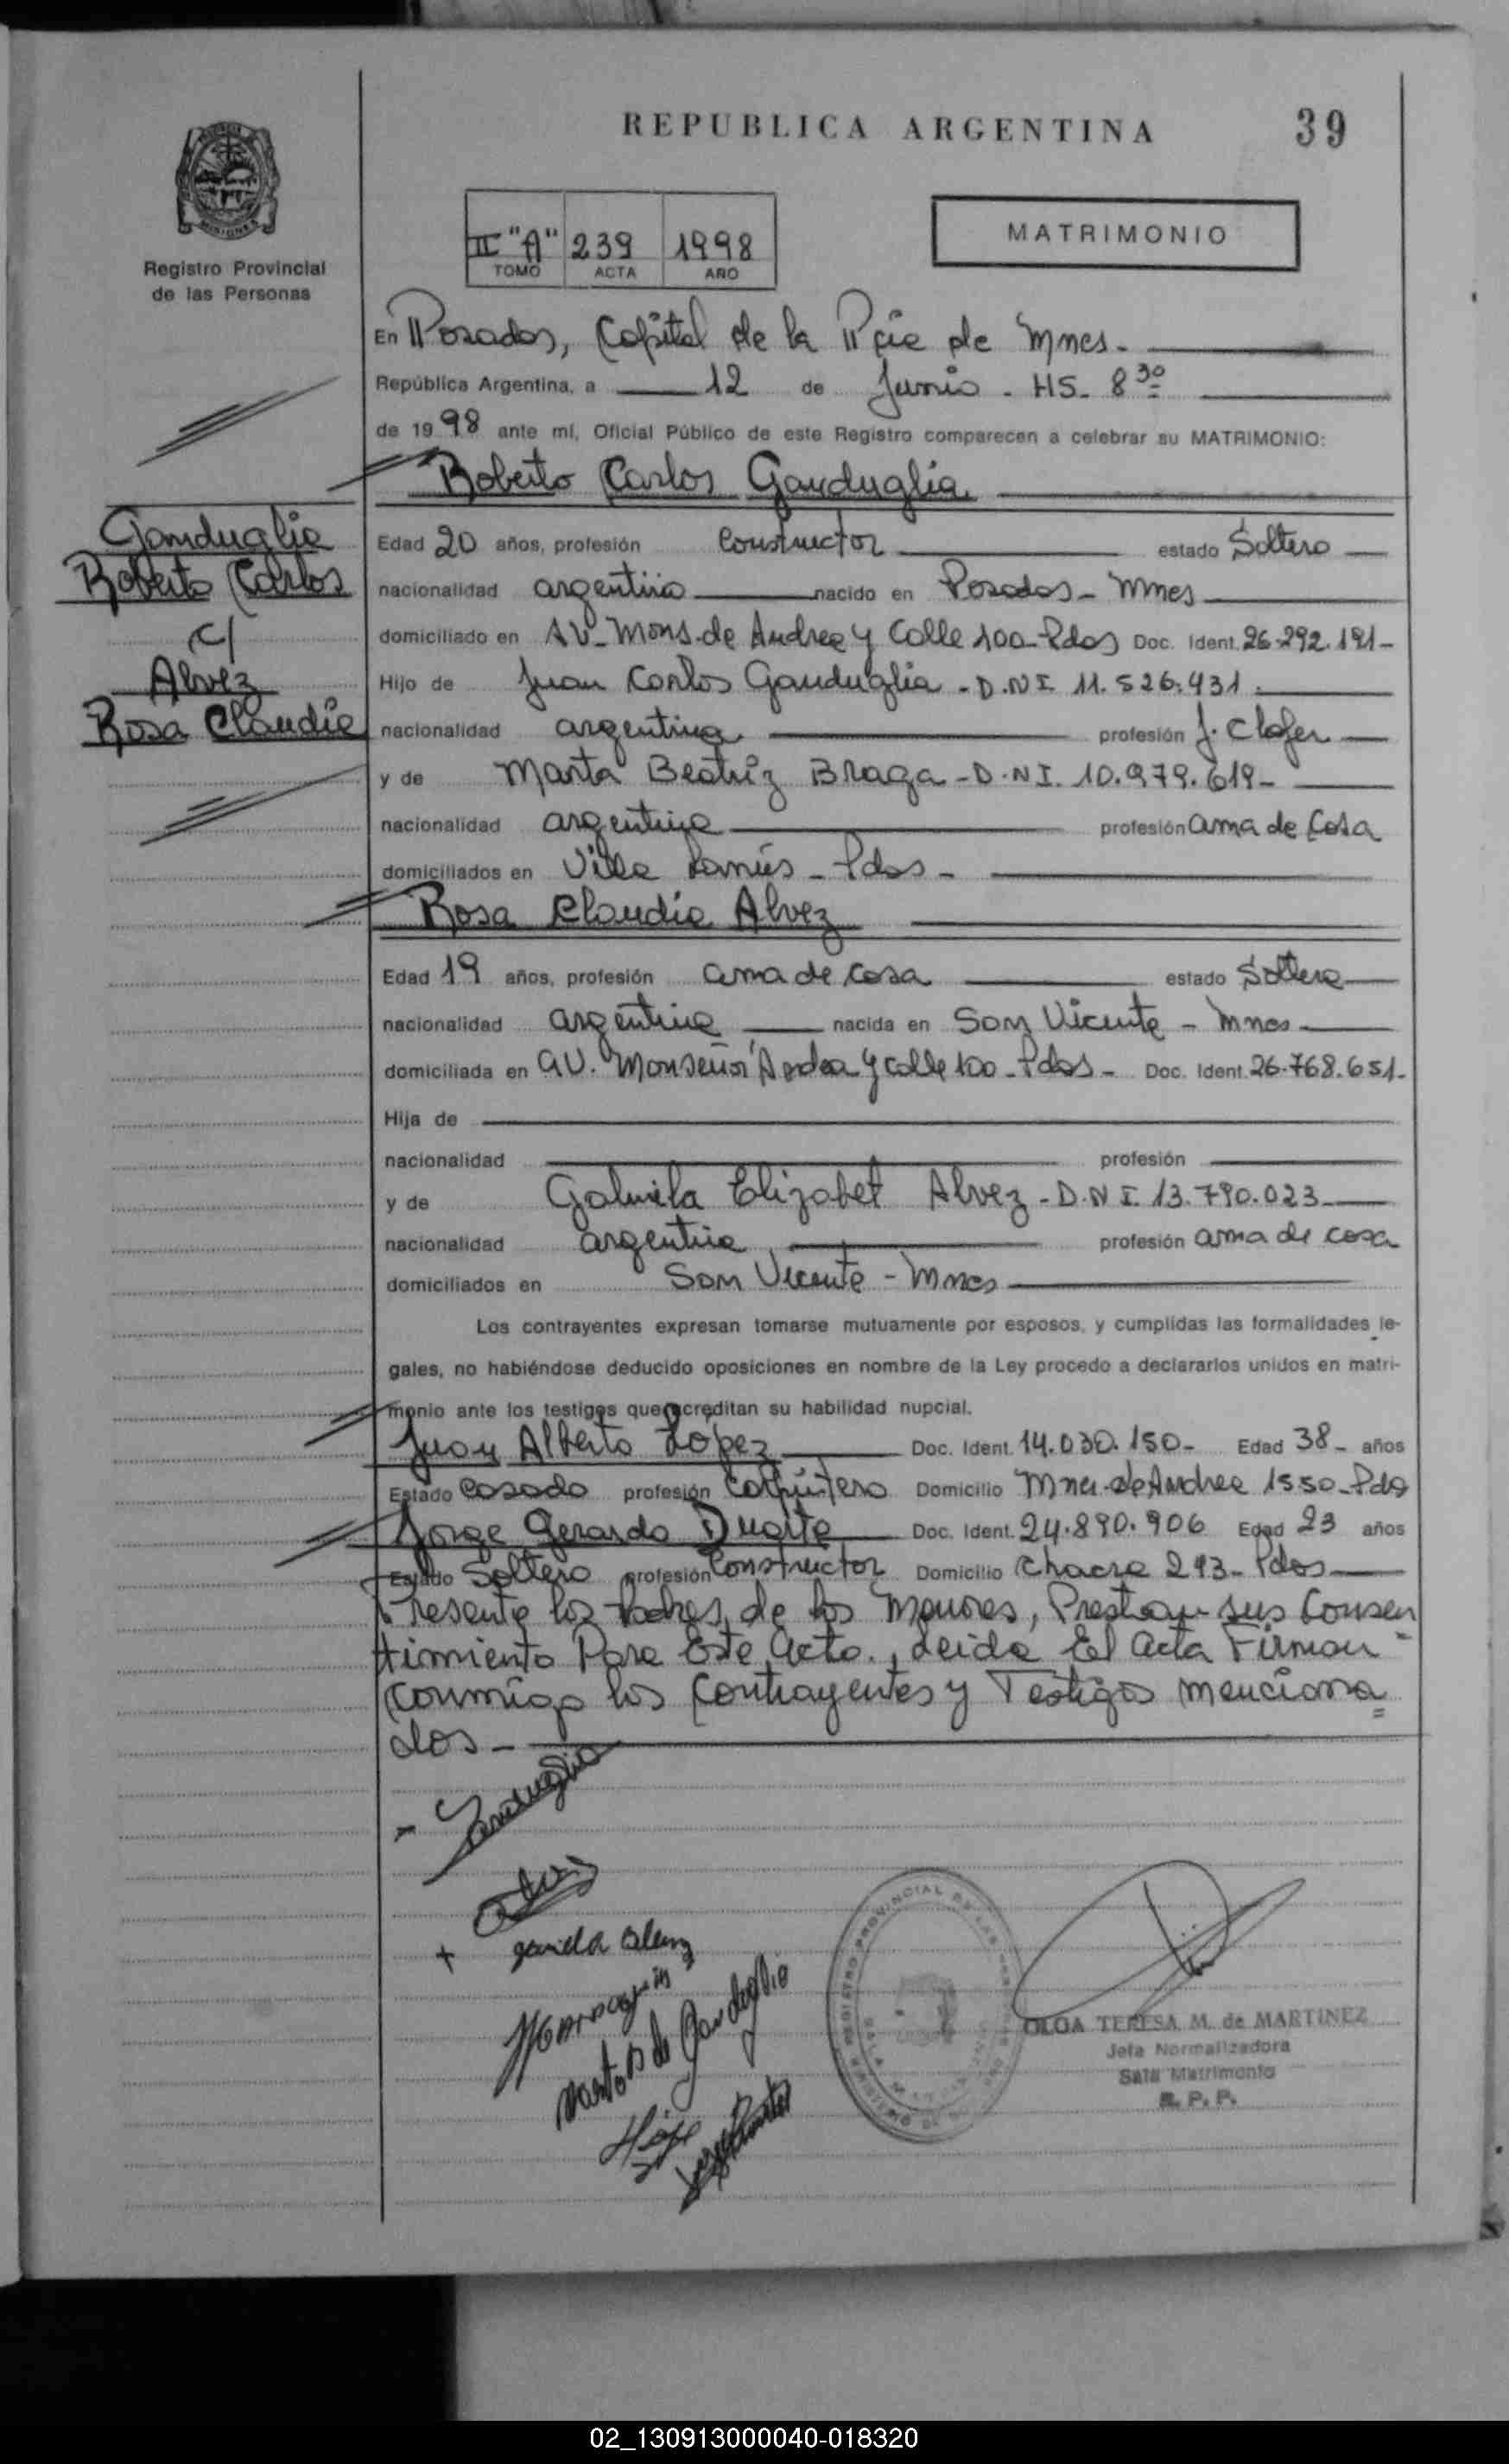 REPUBLICA ARGENTINA
39
MISIONES
Registro Provincial
de las Personas
II "A" 239 1998
TOMO ACTA AÑO
MATRIMONIO
En Posadas, Capital de la Pcia de Mnes.
República Argentina, a 12 de Junio - HS. 8 30
de 1998 ante mí, Oficial Público de este Registro comparecen a celebrar su MATRIMONIO:
Roberto Carlos Ganduglia
Ganduglia
Roberto Carlos
C/
Alvez
Rosa Claudia
Edad 20 años, profesión Constructor estado Soltero
nacionalidad argentina nacido en Posadas - Mnes
domiciliado en AV. Mons. de Andrea y Calle 100 - Pdas Doc. Ident. 26.292.191-
Hijo de Juan Carlos Ganduglia - D.N.I. 11.526.431.
nacionalidad argentina profesión J.
y de Marta Beatriz Braga - D.N.I. 10.979.619-
nacionalidad argentina profesión ama de Casa
domiciliados en Villa Lanús - Pdas -
Rosa Claudia Alvez
Edad 19 años, profesión ama de casa estado Soltera
nacionalidad argentina nacida en San Vicente - Mnes
domiciliada en AV. Monseñor Andrea y calle 100 - Pdas - Doc. Ident. 26.768.651.
Hija de
nacionalidad profesión
y de Gabriela Elizabet Alvez - D.N.I. 13.790.023
nacionalidad argentina profesión ama de casa
domiciliados en San Vicente - Mnes
Los contrayentes expresan tomarse mutuamente por esposos, y cumplidas las formalidades le-
gales, no habiéndose deducido oposiciones en nombre de la Ley procedo a declararlos unidos en matri-
monio ante los testigos que acreditan su habilidad nupcial.
Juan Alberto López Doc. Ident. 14.030.150- Edad 38 - años
Estado Casado profesión Carpintero Domicilio de Andrea 1550 - Pdas
Jorge Gerardo Duarte Doc. Ident. 24.890.906 Edad 23 años
Estado Soltero profesión Constructor Domicilio Chacra 293 - Pdas
Presente los Padres de los Menores, Prestan sus Consen
timiento Para Este Acto., Leida El Acta Firman
conmigo los Contrayentes y Testigos menciona
dos -
Ganduglia
OLGA TERESA M. de MARTINEZ
Jefa Normalizadora
Sala Matrimonio
R. P. P.
02_130913000040-018320